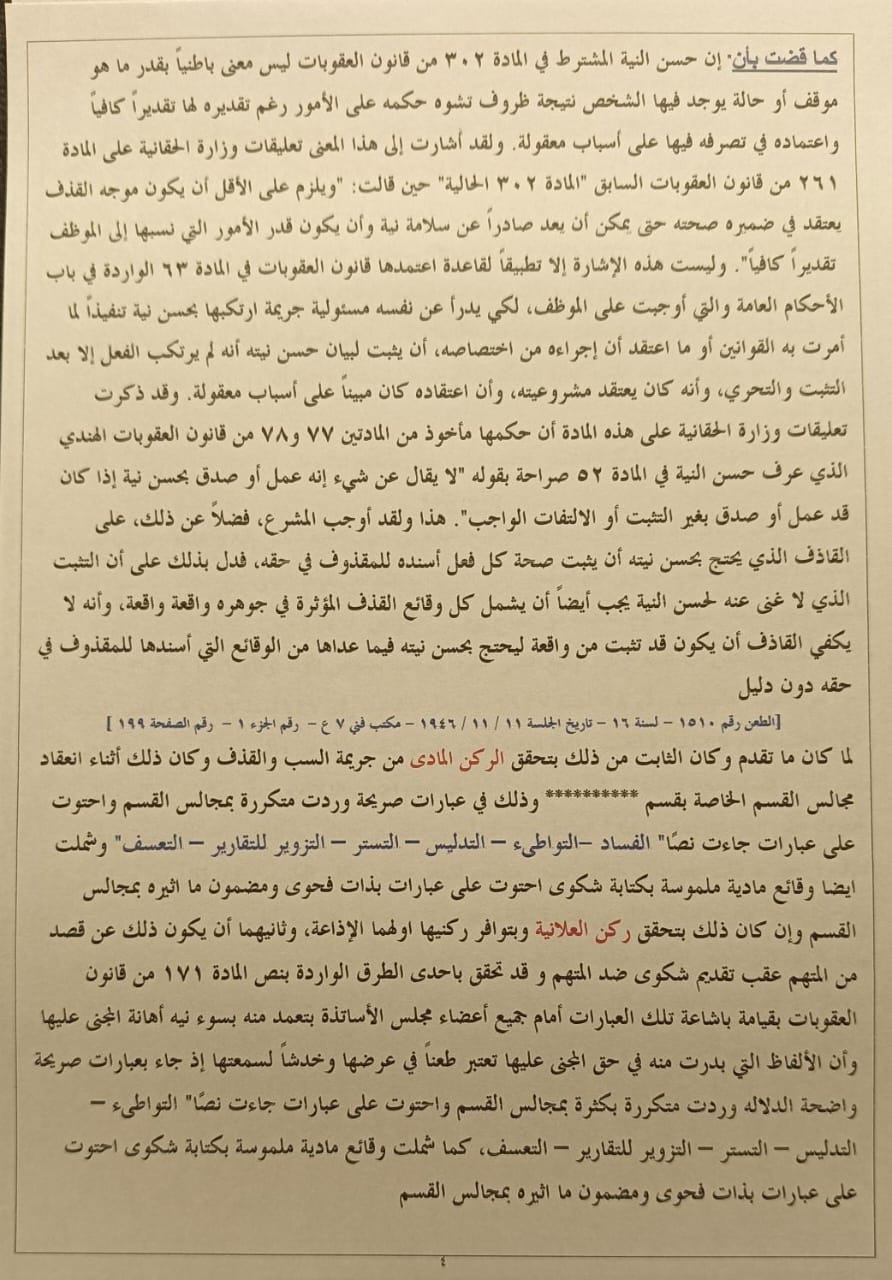 كما قضت بأن" إن حسن النية المشترط في المادة ٣٠٢ من قانون العقوبات ليس معنى باطنياً بقدر ما هو
موقف أو حالة يوجد فيها الشخص نتيجة ظروف تشوه حكمه على الأمور رغم تقديره لها تقديراً كافياً
واعتماده في تصرفه فيها على أسباب معقولة. ولقد أشارت إلى هذا المعنى تعليقات وزارة الحقانية على المادة
٢٦١ من قانون العقوبات السابق "المادة ٣٠٢ الحالية" حين قالت: "ويلزم على الأقل أن يكون موجه القذف
يعتقد في ضميره صحته حتى يمكن أن يعد صادراً عن سلامة نية وأن يكون قدر الأمور التي نسبها إلى الموظف
تقديراً كافياً". وليست هذه الإشارة إلا تطبيقاً لقاعدة اعتمدها قانون العقوبات في المادة ٦٣ الواردة في باب
الأحكام العامة والتي أوجبت على الموظف، لكي يدرأ عن نفسه مسئولية جريمة ارتكبها بحسن نية تنفيذاً لما
أمرت به القوانين أو ما اعتقد أن إجراءه من اختصاصه، أن يثبت لبيان حسن نيته أنه لم يرتكب الفعل إلا بعد
التثبت والتحري، وأنه كان يعتقد مشروعيته، وأن اعتقاده كان مبيناً على أسباب معقولة. وقد ذكرت
تعليقات وزارة الحقانية على هذه المادة أن حكمها مأخوذ من المادتين ٧٧ و٧٨ من قانون العقوبات الهندي
الذي عرف حسن النية في المادة ٥٢ صراحة بقوله "لا يقال عن شيء إنه عمل أو صدق بحسن نية إذا كان
قد عمل أو صدق بغير التثبت أو الالتفات الواجب". هذا ولقد أوجب المشرع، فضلاً عن ذلك، على
القاذف الذي يحتج بحسن نيته أن يثبت صحة كل فعل أسنده للمقذوف في حقه، فدل بذلك على أن التثبت
الذي لا غنى عنه لحسن النية يجب أيضاً أن يشمل كل وقائع القذف المؤثرة في جوهره واقعة واقعة، وأنه لا
يكفي القاذف أن يكون قد تثبت من واقعة ليحتج بحسن نيته فيما عداها من الوقائع التي أسندها للمقذوف في
حقه دون دليل
[الطعن رقم ١٥١٠ – لسنة ١٦ – تاريخ الجلسة ١١ / ١١ / ١٩٤٦ – مكتب فني ٧ ع – رقم الجزء ١ – رقم الصفحة ١٩٩ ]
لما كان ما تقدم وكان الثابت من ذلك بتحقق الركن المادى من جريمة السب والقذف وكان ذلك أثناء انعقاد
مجالس القسم الخاصة بقسم ********** وذلك في عبارات صريحة وردت متكررة بمجالس القسم واحتوت
على عبارات جاءت نصًا" الفساد –التواطىء – التدليس – التستر – التزوير للتقارير – التعسف" وشملت
ايضا وقائع مادية ملموسة بكتابة شكوى احتوت على عبارات بذات فحوى ومضمون ما اثيره بمجالس
القسم وإن كان ذلك بتحقق ركن العلانية وبتوافر ركنيها اولهما الإذاعة، وثانيهما أن يكون ذلك عن قصد
من المتهم عقب تقديم شكوى ضد المتهم و قد تحقق باحدى الطرق الواردة بنص المادة ١٧١ من قانون
العقوبات بقيامة باشاعة تلك العبارات أمام جميع أعضاء مجلس الأساتذة بتعمد منه بسوء نيه أهانة المجنى عليها
وأن الألفاظ التي بدرت منه في حق المجنى عليها تعتبر طعناً في عرضها وخدشاً لسمعتها إذ جاء بعبارات صريحة
واضحة الدلاله وردت متكررة بكثرة بمجالس القسم واحتوت على عبارات جاءت نصًا" التواطىء –
التدليس – التستر – التزوير للتقارير – التعسف، كما شملت وقائع مادية ملموسة بكتابة شكوى احتوت
على عبارات بذات فحوى ومضمون ما اثيره بمجالس القسم
٤